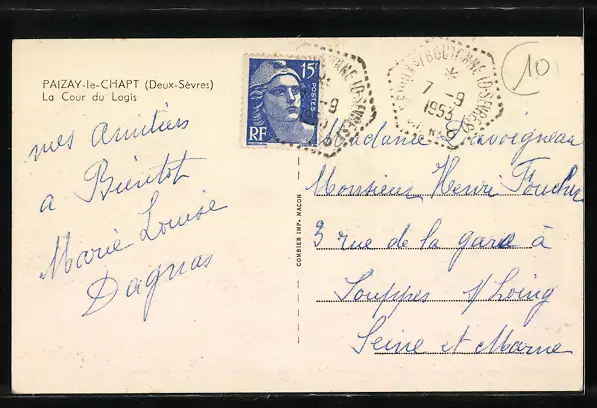 PAIZAY-le-CHAPT (Deux-Sèvres)
La Cour du Logis
mes Amitiés
a Bientôt
Marie Louise
Dagnas
15F
POSTES
RF
7 -9
1953
10
COMBIER IMP. MACON
Madame Davoigneau
Monsieur Henri Foucher
3 rue de la gare à
Souppes s/ Loing
Seine et Marne